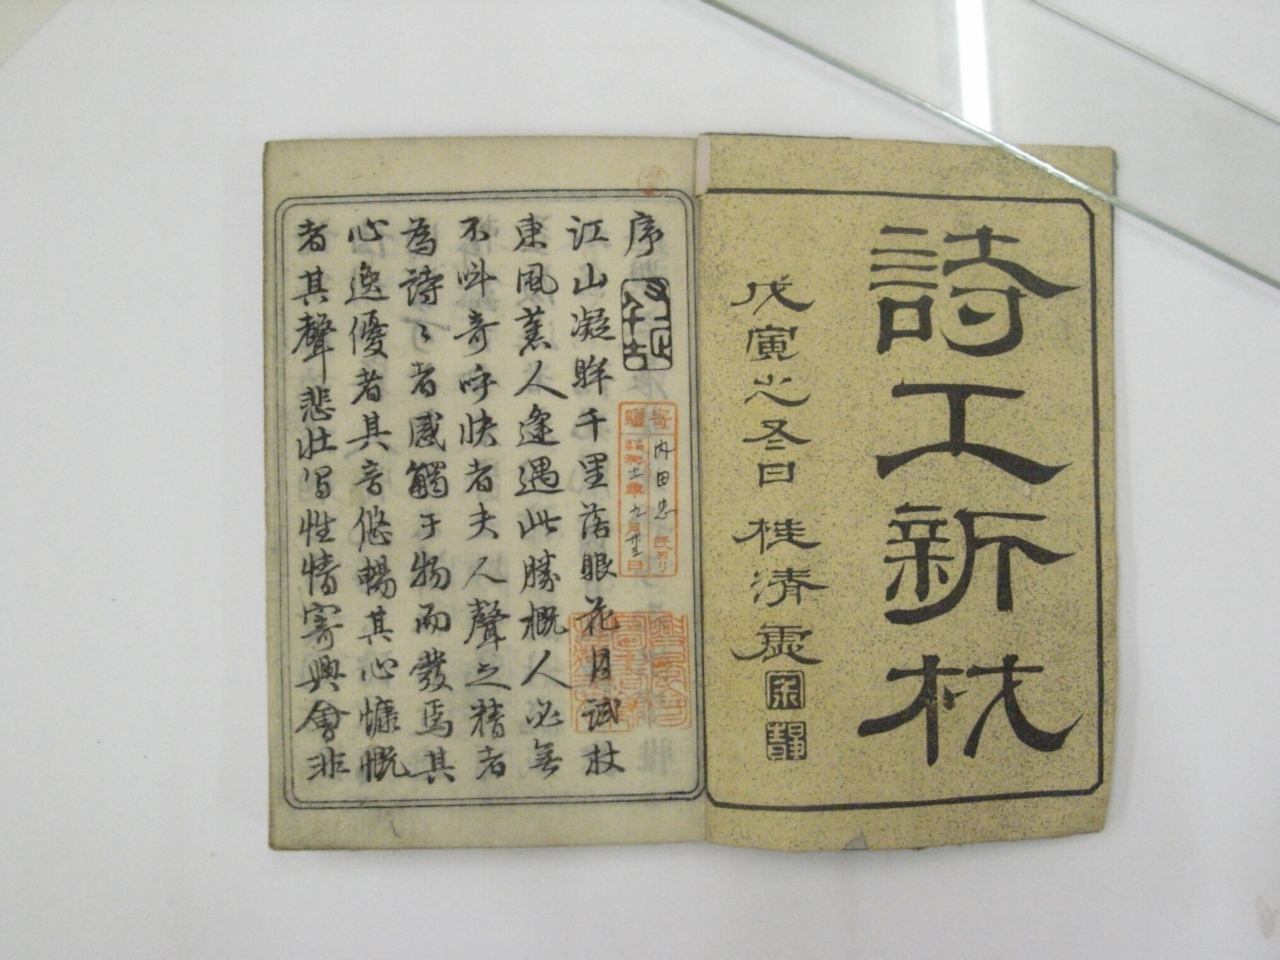 詩工新材
戊寅之冬日 桂清處
序
寄贈
内田忠氏ヨリ
昭和十一年九月廿三日
江山凝眸千里落眼花月試杖
東風蕉人逢遇此勝概人必無
不呌奇呼快者夫人聲之精者
為詩〻者感觸于物而發焉其
心逸優者其音悠暢其心慷慨
者其聲悲壯寫性情寄興會非